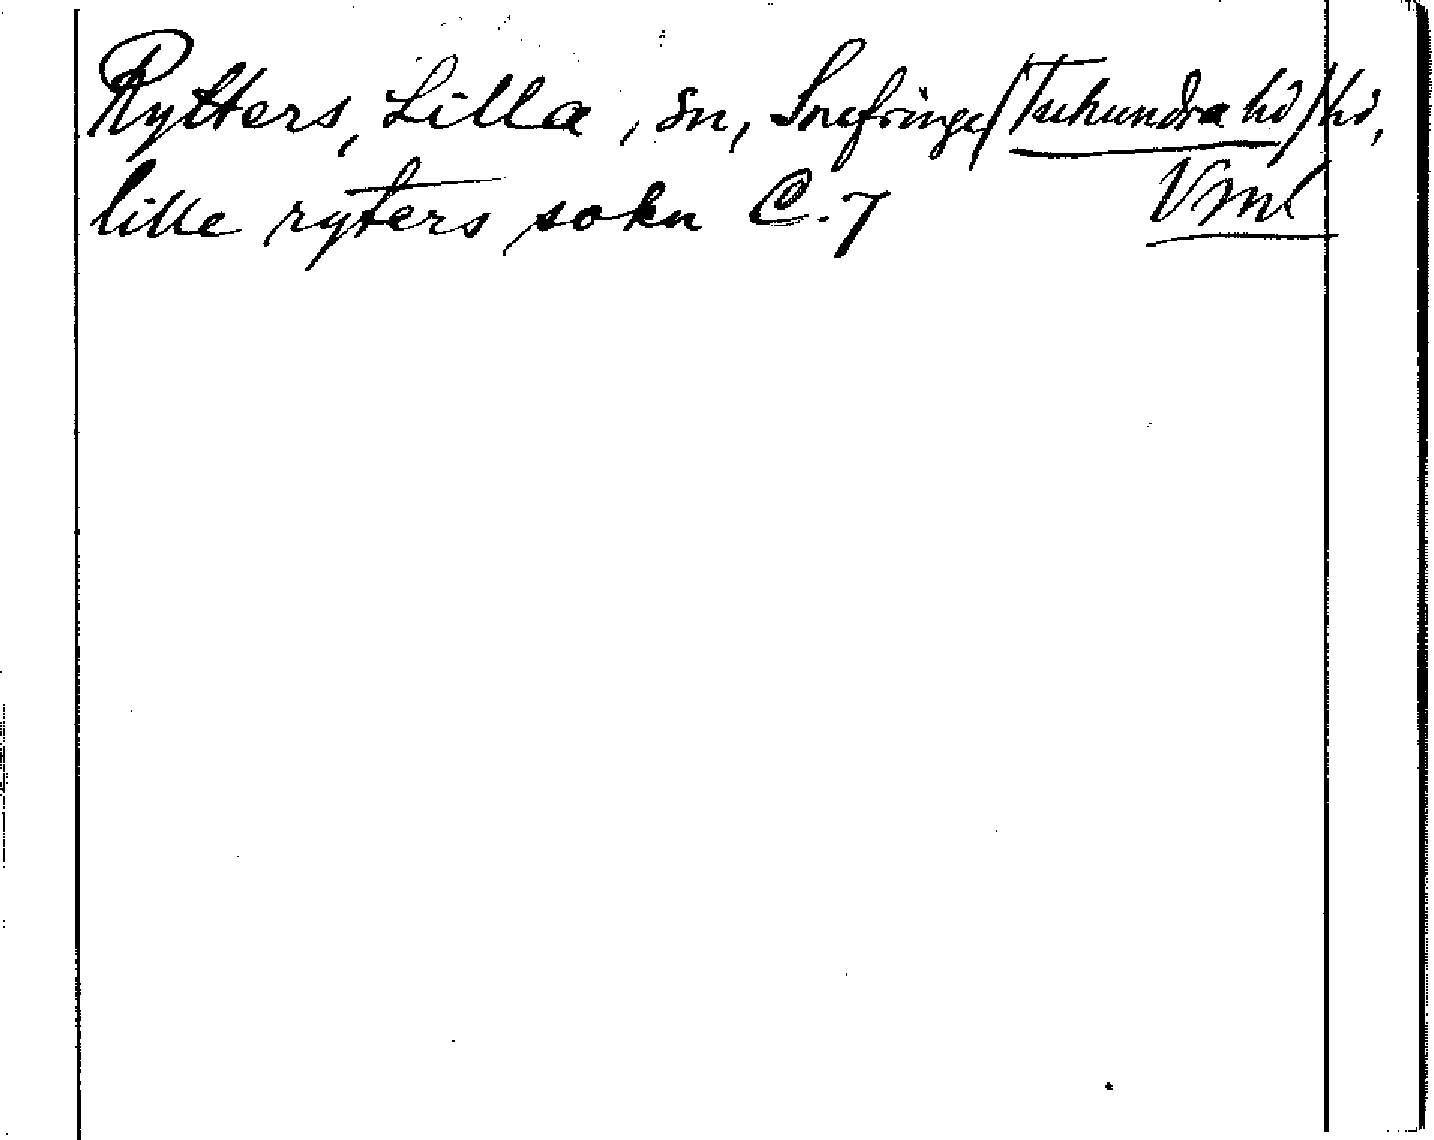 Rytters, Lilla, sn, Snefringe (Tuhundra hd) hd,
lille ryters sokn C. 7 Vml